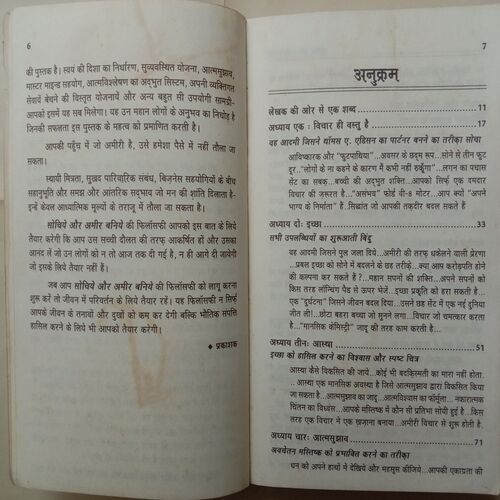 6
की पुस्तक है। स्वयं की दिशा का निर्धारण, सुव्यवस्थित योजना, आत्मसुझाव,
मास्टर माइन्ड सहयोग, आत्मविश्लेषण का अद्भुत सिस्टम, अपनी व्यक्तिगत
सेवायें बेचने की विस्तृत योजनायें और अन्य बहुत सी उपयोगी सामग्री-
आपको इसमें यह सब मिलेगा। यह उन महान लोगों के अनुभव का निचोड़ है
जिनकी सफलता इस पुस्तक के महत्व को प्रमाणित करती है।
आपकी पहुँच में जो अमीरी है, उसे हमेशा पैसे में नहीं तौला जा
सकता।
स्थायी मित्रता, सुखद पारिवारिक संबंध, बिज़नेस सहयोगियों के बीच
सहानुभूति और समझ और आंतरिक सद्भाव जो मन की शांति दिलाता है-
इन्हें केवल आध्यात्मिक मूल्यों के तराजू में तौला जा सकता है।
सोचिये और अमीर बनिये की फिलॉसफी आपको इस बात के लिये
तैयार करेगी कि आप उस सच्ची दौलत की तरफ आकर्षित हों और उसका
आनंद लें जो उन लोगों को न तो आज तक दी गई है, न ही आगे दी जायेगी
जो इसके लिये तैयार नहीं हैं।
जब आप सोचिये और अमीर बनिये की फिलॉसफी को लागू करना
शुरू करें तो जीवन में परिवर्तन के लिये तैयार रहें। यह फिलॉसफी न सिर्फ़
आपके जीवन के तनावों और दुखों को कम कर देगी बल्कि भौतिक संपत्ति
हासिल करने के लिये भी आपको तैयार करेगी।
♦ प्रकाशक
7
अनुक्रम
लेखक की ओर से एक शब्द ........ 11
अध्याय एक : विचार ही वस्तु है ........ 17
वह आदमी जिसने थॉमस ए. एडिसन का पार्टनर बनने का तरीक़ा सोचा
आविष्कारक और "फुटपाथिया"...अवसर के छद्म रूप...सोने से तीन फुट
दूर..."लोगों के ना कहने के कारण में कभी नहीं रुकूँगा"...लगन का पचास
सेंट का सबक...बच्ची की अद्भुत शक्ति...आपको सिर्फ़ एक दमदार
विचार की ज़रूरत है..."असंभव" फोर्ड वी-8 मोटर...आप क्यों "अपने
भाग्य के निर्माता" हैं...सिद्धांत जो आपकी तक़दीर बदल सकते हैं
अध्याय दो: इच्छा ........ 33
सभी उपलब्धियों का शुरूआती बिंदु
वह आदमी जिसने पुल जला दिये...अमीरी की तरफ़ धकेलने वाली प्रेरणा
...प्रबल इच्छा को सोने में बदलने के छह तरीके...क्या आप करोड़पति होने
की कल्पना कर सकते हैं?...महान सपनों की शक्ति...अपने सपनों को
किस तरह लॉन्चिंग पैड से ऊपर भेजें...इच्छा प्रकृति को हरा सकती है...
एक "दुर्घटना" जिसने जीवन बदल दिया...उसने छह सेंट में एक नई दुनिया
जीत ली!...छोटा बहरा बच्चा जो सुनने लगा...विचार जो चमत्कार करता
है..."मानसिक केमिस्ट्री" जादू की तरह काम करती है...
अध्याय तीन: आस्था ........ 51
इच्छा को हासिल करने का विश्वास और स्पष्ट चित्र
आस्था कैसे विकसित की जाये...कोई भी बदकिस्मती का मारा नहीं होता.
.. आस्था एक मानसिक अवस्था है जिसे आत्मसुझाव द्वारा विकसित किया
जा सकता है...आत्मसुझाव का जादू...आत्मविश्वास का फॉर्मूला... नकारात्मक
चिंतन का विध्वंस...आपके मस्तिष्क में कौन सी प्रतिभा सोयी हुई है...किस
तरह एक विचार ने एक ख़ज़ाना बनाया...अमीरी विचार से शुरू होती है.
अध्याय चार: आत्मसुझाव ........ 71
अवचेतन मस्तिष्क को प्रभावित करने का तरीक़ा
धन को अपने हाथों में देखिये और महसूस कीजिये...आपकी एकाग्रता की